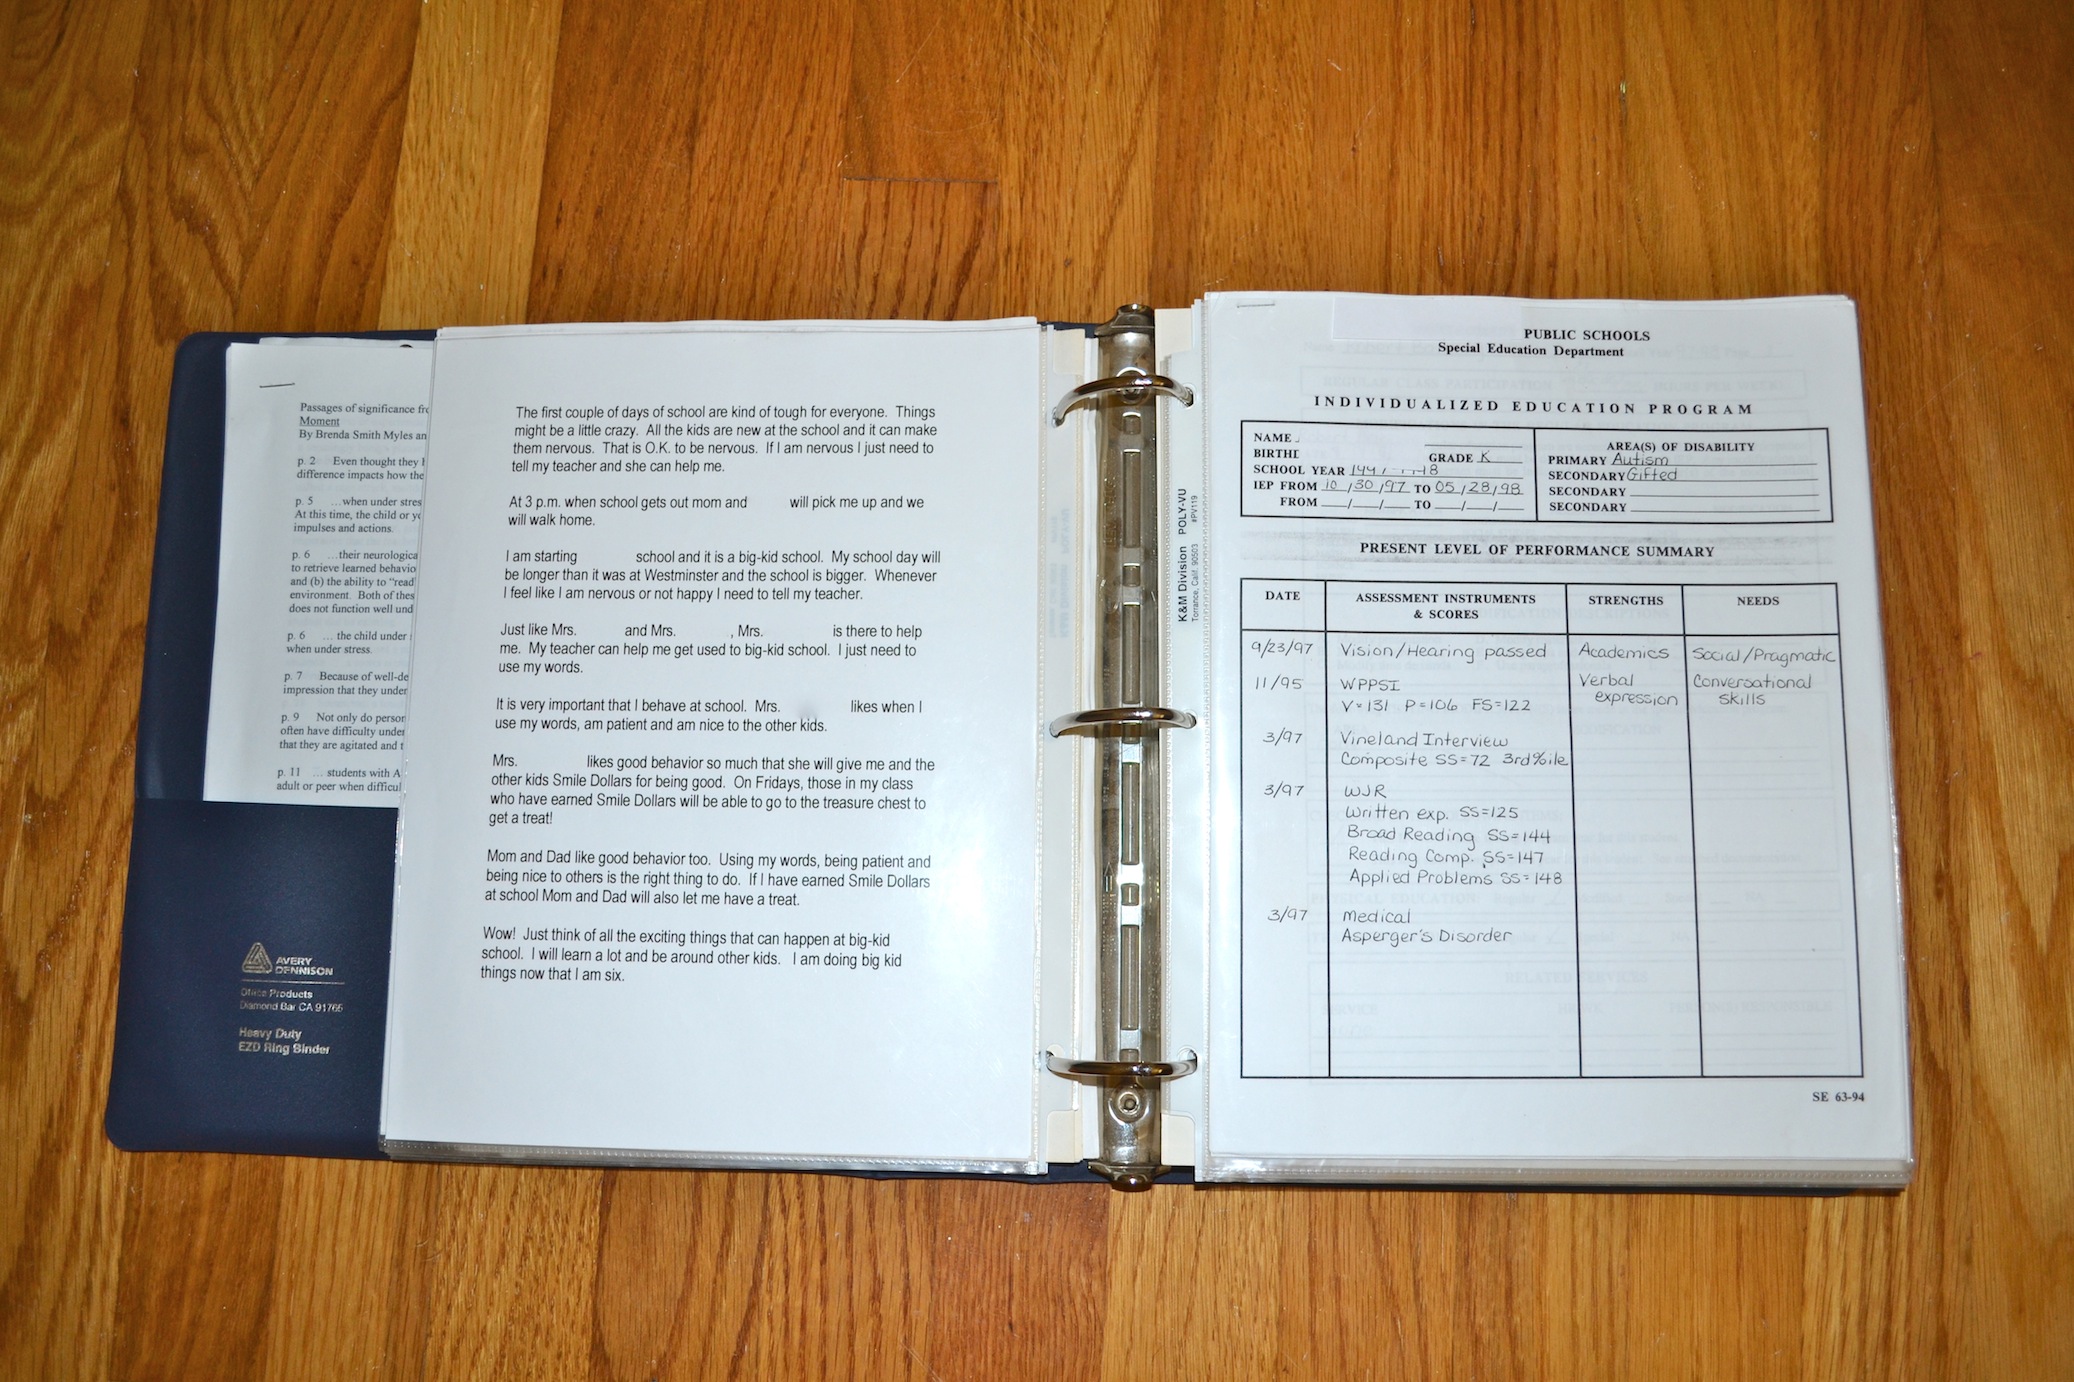 Passages of significance
Moment
By Brenda Smith Myles
p. 2 Even thought they
difference impacts how the
p. 5 ...when under stres
At this time, the child or
impulses and actions.
p. 6 ...their neurologica
to retrieve learned behavio
and (b) the ability to "read
environment. Both of thes
does not function well und
p. 6 ... the child under
when under stress.
p. 7 Because of well-de
impression that they under
p. 9 Not only do person
often have difficulty under
that they are agitated and
p. 11 ... students with A
adult or peer when difficul
AVERY
DENNISON
Office Products
Diamond Bar CA 91765
Heavy Duty
EZD Ring Binder
The first couple of days of school are kind of tough for everyone. Things
might be a little crazy. All the kids are new at the school and it can make
them nervous. That is O.K. to be nervous. If I am nervous I just need to
tell my teacher and she can help me.
At 3 p.m. when school gets out mom and will pick me up and we
will walk home.
I am starting school and it is a big-kid school. My school day will
be longer than it was at Westminster and the school is bigger. Whenever
I feel like I am nervous or not happy I need to tell my teacher.
Just like Mrs. and Mrs. , Mrs. is there to help
me. My teacher can help me get used to big-kid school. I just need to
use my words.
It is very important that I behave at school. Mrs. likes when I
use my words, am patient and am nice to the other kids.
Mrs. likes good behavior so much that she will give me and the
other kids Smile Dollars for being good. On Fridays, those in my class
who have earned Smile Dollars will be able to go to the treasure chest to
get a treat!
Mom and Dad like good behavior too. Using my words, being patient and
being nice to others is the right thing to do. If I have earned Smile Dollars
at school Mom and Dad will also let me have a treat.
Wow! Just think of all the exciting things that can happen at big-kid
school. I will learn a lot and be around other kids. I am doing big kid
things now that I am six.
K&M Division POLY-VU
Torrance, Calif. 90503 #PV119
PUBLIC SCHOOLS
Special Education Department
INDIVIDUALIZED EDUCATION PROGRAM
NAME
BIRTHD
GRADE K
SCHOOL YEAR
IEP FROM 10/30/97 TO 05/28/98
FROM __/__/__ TO __/__/__
AREA(S) OF DISABILITY
PRIMARY Autism
SECONDARY Gifted
SECONDARY
SECONDARY
PRESENT LEVEL OF PERFORMANCE SUMMARY
DATE ASSESSMENT INSTRUMENTS & SCORES STRENGTHS NEEDS
9/23/97 Vision/Hearing passed Academics Social/Pragmatic
11/95 WPPSI Verbal Conversational
V=131 P=106 FS=122 expression skills
3/97 Vineland Interview
Composite SS=72 3rd%ile
3/97 WJR
Written exp. SS=125
Broad Reading SS=144
Reading Comp. SS=147
Applied Problems SS=148
3/97 Medical
Asperger's Disorder
SE 63-94